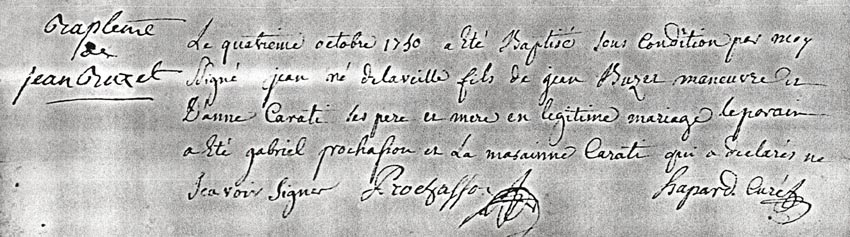 Bapleme
de
jean Buzet
Le quatrieme octobre 1750 a Eté Baptisé sous Condition par moy
signé jean né delaveille fils de jean Buzet maneuvre et
D'anne Carati ses pere et mere en legitime mariage leparain
a Eté gabriel prochasson et La marainne Carati qui a declarés ne
scavoir signer Prochasson hapard. Curé